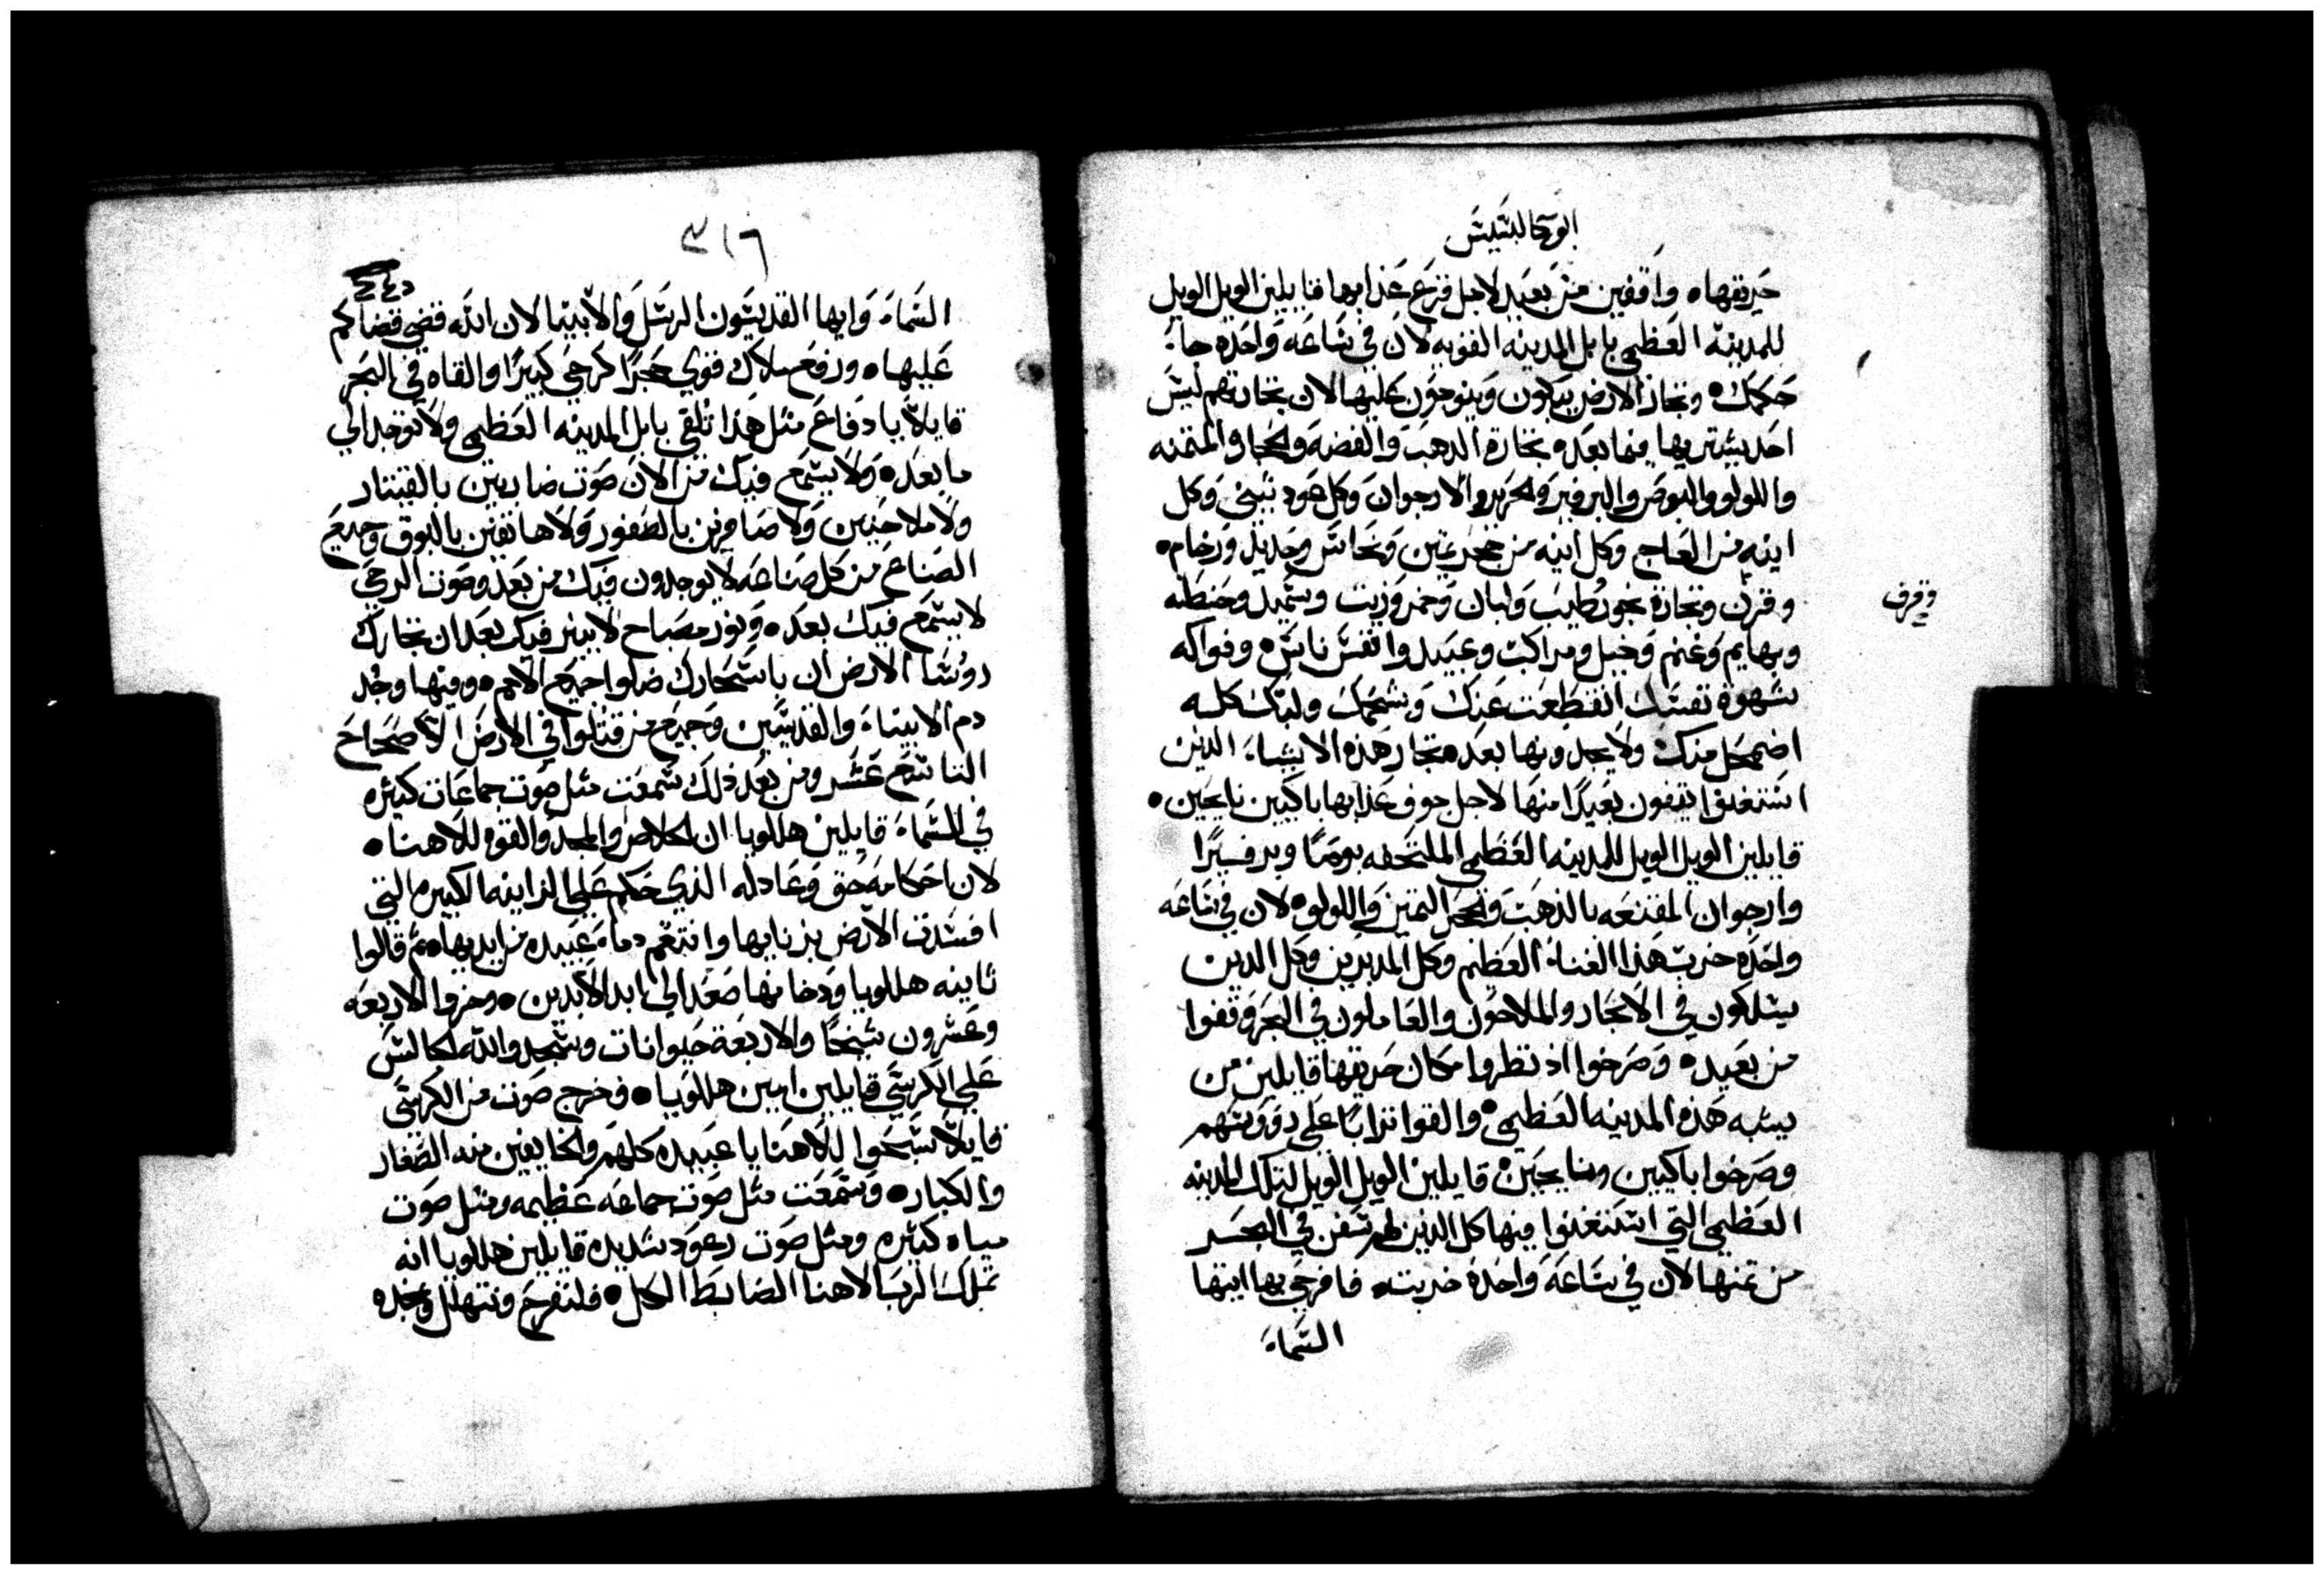 ابوكالبسيس
حريقهاه واقفين من بعيد لاجل فزع عذابها قايلين الويل الويل
للمدينه العظمي بابل المدينه القويه لان في ساعه واحده جاء
حكمك ه وتجار الارض يبكون وينوحون عليها لان تجارتهم ليس
احد يشتريها فيما بعد ه تجارة الدهب والفضه والحجاره المتمنه
واللولو والبوص والبرفير والحرير والارجوان وكل عود تيني وكل
انيه من العاج وكل انيه من حجر تمين ونحاس وحديد ورخام ه
وقرفه
وقرن وتجارة بخور طيب ولبان وخمر وزيت وسميد وحنطه
وبهايم وغنم وخيل ومراكب وعبيد وانفس ناس ه وفواكه
شهوة نفسك انقطعت عنك وشحمك ولبنك كله
اضمحل منك ولا يجدونها بعد ه تجار هذه الاشياء الدين
استغنوا يقفون بعيدًا منها لاجل خوف عذابها باكيين نايحين ه
قايلين الويل الويل للمدينه العظمي الملتحفه بوصًا وبرفيرًا
وارجوان المقنعه بالذهب والحجر التمين واللولوه لان في ساعه
واحده خرب هذا الغناء العظيم وكل المدبرين وكل الدين
يسلكون في الابحار والملاحون والعاملون في البحر وقفوا
من بعيد ه وصرخوا اذ نظروا مكان حريقها قايلين من
يشبه هذه المدينه العظمي ه والقوا ترابًا علي رووسهم
وصرخوا باكيين ونايحين ه قايلين الويل الويل لتلك المدينه
العظمي التي استغنوا منها كل الذين لهم سفن في البحر
من تمنها لان في ساعة واحده خربت ه فافرحي بها ايتها
السماء
٣١٦
السماء وايها القديسون الرسل والانبيا لان الله قضي قضاكم
عليها ه ورفع ملاك قوي حجرًا كرحي كبيرًا والقاه في البحر
قايلًا بادفاع مثل هذا تلقي بابل المدينه العظمي ولا توجد الي
ما بعد ه ولا يسمع فيك من الان صوت ضاربين بالقيتار
ولا ملاحنين ولا صافرين بالطنفور ولا هاتفين بالبوق وجميع
الصناع من كل صناعه لا يوجدون فيك من بعد وصوت الرحي
لا يسمع فيك بعد ه ونور مصباح لا ينير فيك بعد ان تجارك
روسا الارض ان باسحارك ضلوا جميع الامم ه وفيها وجد
دم الانبياء والقديسين وجميع من قتلوا في الارض الاصحاح
التاسع عشر ومن بعد ذلك سمعت مثل صوت جماعات كثيره
في السماء قايلين هللويا ان الخلاص والمجد والقوه للاهنا ه
لان احكامه حق وعادله الذي حكم علي الزانيه الكبيره التي
افسدت الارض بزنايها وانتقم دماء عبيده من ايديها ه ثم قالوا
ثانيه هللويا ودخانها صعد الي ابد الابدين ه وخروا الاربعه
وعشرون شيخًا والاربعة حيوانات وسجدوا لله الجالس
علي الكرسي قايلين امين هللويا ه وخرج صوت من الكرسي
قايلًا سبحوا للاهنا يا عبيده كلهم والخايفين منه الصغار
والكبار ه وسمعت مثل صوت جماعه عظيمه ومثل صوت
مياه كثيره ومثل صوت رعود شديده قايلين هللويا انه
تملك الرب الاهنا الضابط الكل ه فلنفرح ونتهلل ونمجده